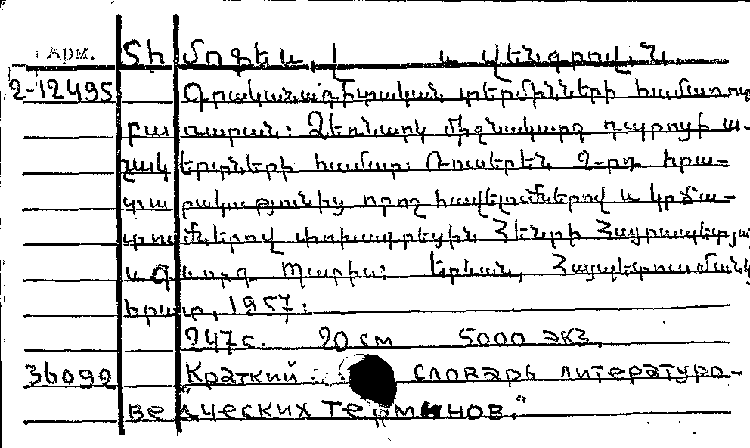 Арм. Տի մոֆեև, Լ և վենգրով, Ն.
2-12495 Գրականագիտական տերմինների համառոտ
բառարան: Ձեռնարկ միջնակարգ դպրոցի ա-
շակերտների համար: Ռուսերեն 2-րդ հրա-
տարակությունից որոշ հավելումներով և կրճա-
տումներով փոխադրեցին Հենրի Հայրապետյան
և Գևորգ Մարիա: Երևան, Հայպետուսմանկ
հրատ, 1957:
247 с. 20 см 5000 экз.
36092 Краткий словарь литературо-
ведческих терминов."